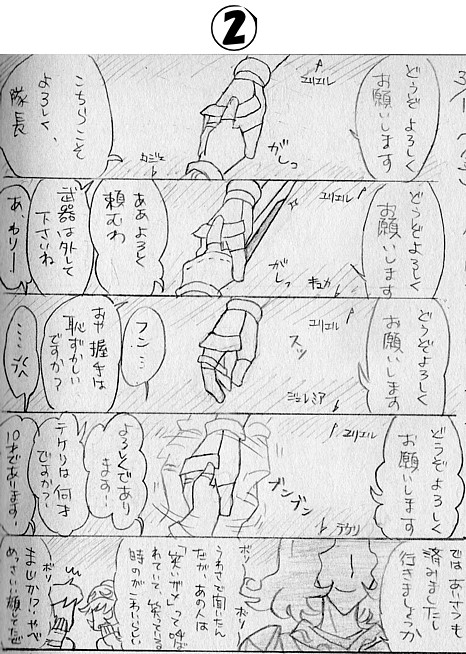 2
どうぞ よろしく
お願いします
ユリエル
がしっ
カジェ
こちらこそ
よろしく、
隊長
どうぞよろしく
お願いします
ユリエル
がしっ
キュカ
ああ よろしく
頼むわ
武器は外して
下さいね
あ、わりー
どうぞよろしく
お願いします
ユリエル
スッ
ジェレミア
フン…
おや 握手は
恥ずかしい
ですか?
どうぞよろしく
お願いします
ユリエル
ブンブン
テケリ
よろしくであり
ます…
テケリは何才
ですか?
10才であります…
では、あいさつも
済みましたし
行きましょうか
ボソ
ボソ
うわさで聞いたん
だが、あの人は
「笑いザル」って呼ば
れていて、笑っている
時のがこわいらしい
ボソ
まじか!?やべ
めっさいい顔してたぜ